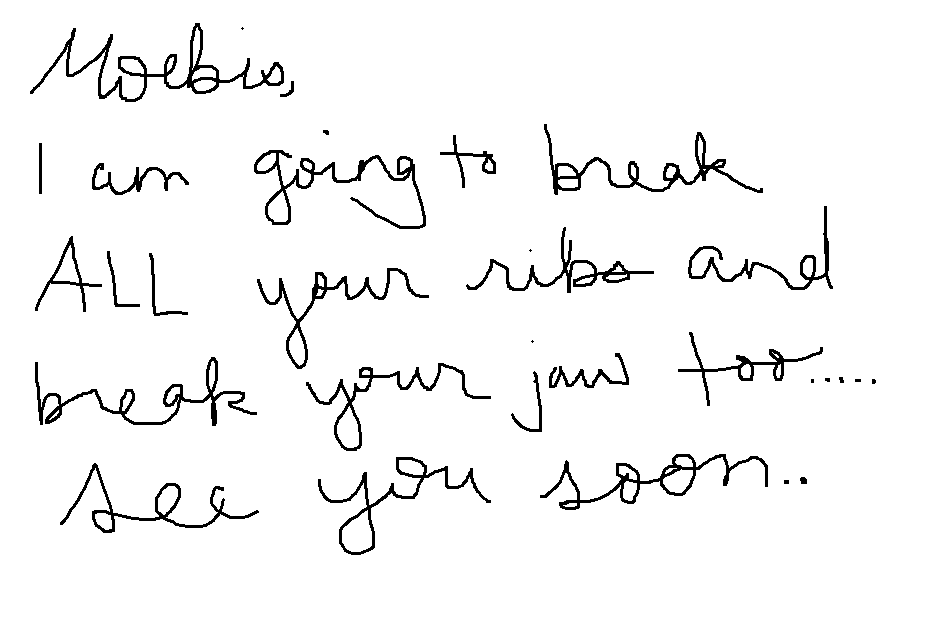 Moebis,
I am going to break
ALL your ribs and
break your jaw too.....
see you soon..